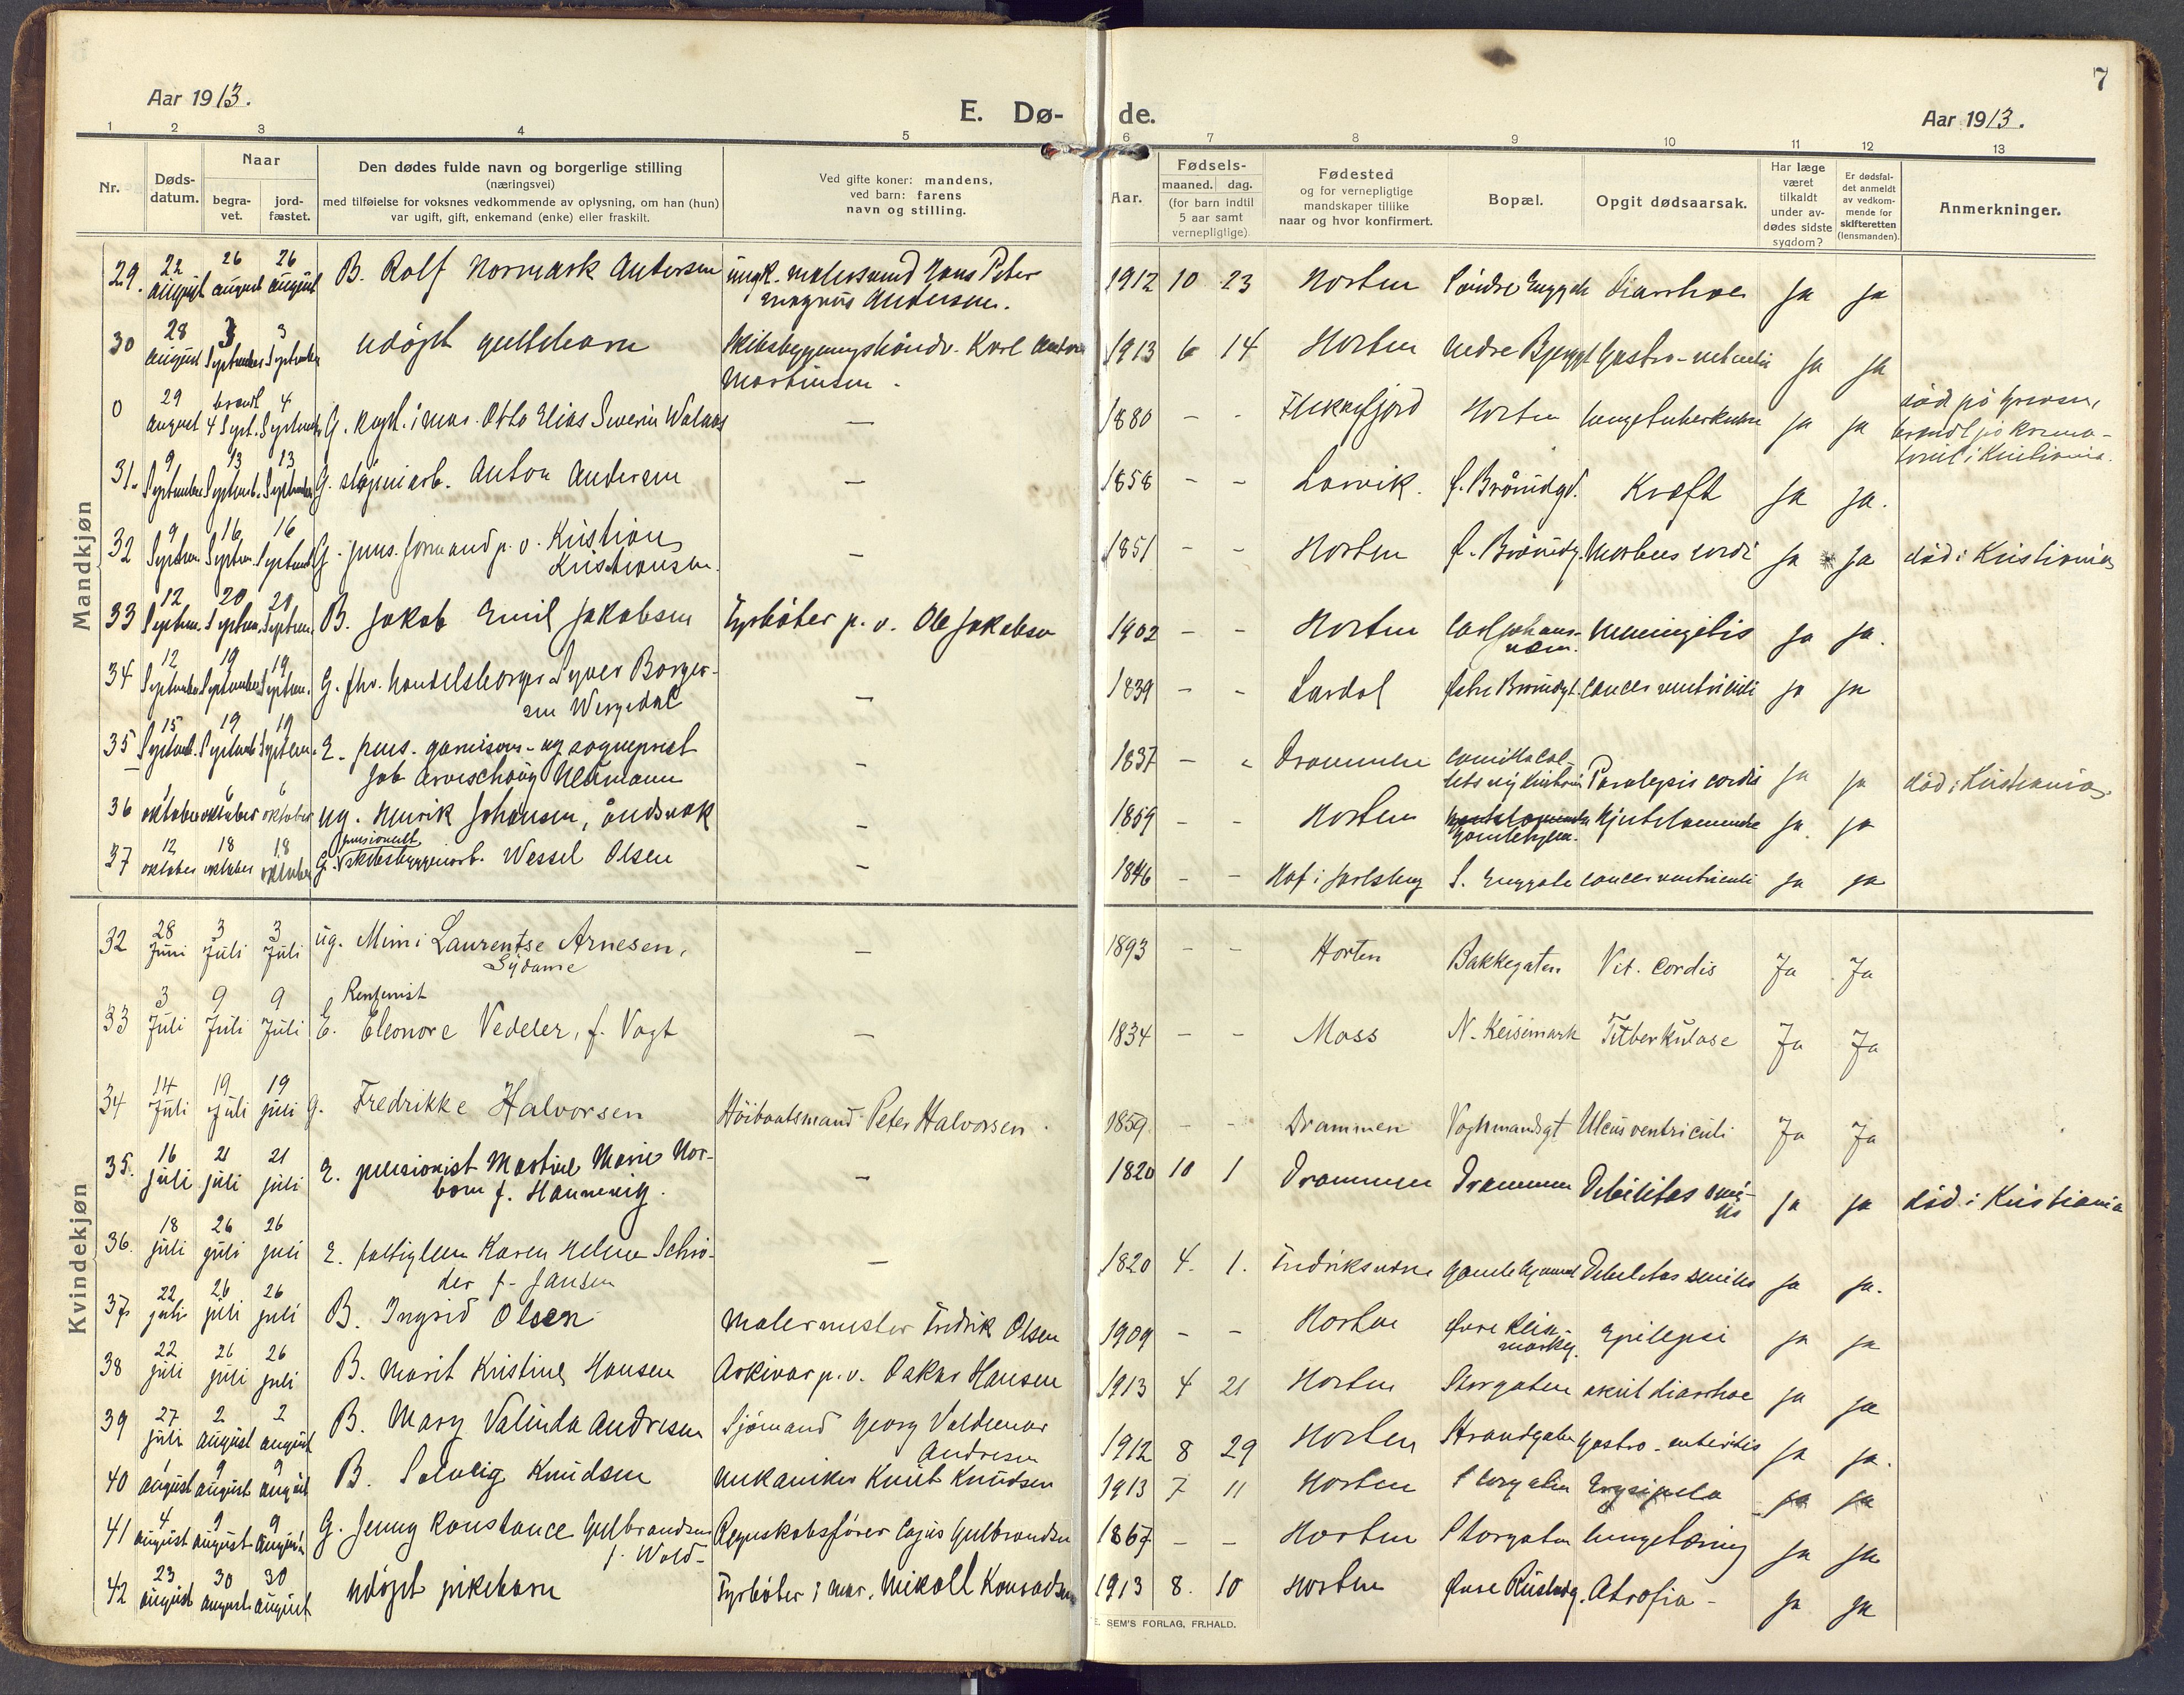 7
Aar 1913.
E. Dø-
de.
Aar 1913.
1 2 3 4 5 6 7 8 9 10 11 12 13
Nr.
Døds-
datum.
Naar
begra-
vet.
jord-
fæstet.
Den dødes fulde navn og borgerlige stilling
(næringsvei)
med tilføielse for voksnes vedkommende av oplysning, om han (hun)
var ugift, gift, enkemand (enke) eller fraskilt.
Ved gifte koner: mandens,
ved barn: farens
navn og stilling.
Aar.
Fødsels-
maaned. dag.
(for barn indtil
5 aar samt
vernepligtige).
Fødested
og for vernepligtige
mandskaper tillike
naar og hvor konfirmert.
Bopæl.
Opgit dødsaarsak.
Har læge
været
tilkaldt
under av-
dødes sidste
sygdom?
Er dødsfal-
det anmeldt
av vedkom-
mende for
skifteretten
(lensmanden).
Anmerkninger.
Mandkjøn
29. 22 august 26 august 26 august B. Rolf Normark Andersen Hans Peter
Magnus Andersen. 1912 10 23 Horten Søndre Diarrhoe Ja Ja
30 28 august 3 September 3 September udøpt guttebarn Karl Anton
Martinsen. 1913 6 14 Horten Nedre Gastro-enteritis Ja Ja
0 29 august brendt 4 Sept. 4 September G. i mar. Otto Elias Severin — 1880 - - Flekkefjord Horten Lungetuberkulose Ja Ja død på
brendt på krema-
toriet i Kristiania.
31. 9 September 13 Septemb. 13 September G. støperiarb. Anton Andersen — 1858 - - Larvik. Kræft Ja Ja.
32 9 Septem. 16 Septem. 16 Septemb. G. pens. formand p. v. Kristian
Kristiansen. — 1851 - - Horten Morbus cordi Ja Ja død i Kristiania
33 12 Septem. 20 Septem. 20 Septem. B. Jakob Emil Jakobsen Fyrbøter p. v. Ole Jakobsen 1902 - - Horten Carl Johans-
Meningitis Ja Ja.
34 12 September 19 September 19 Septem. G. fhv. handelsborger Syver Borger-
sen — 1839 - - Lardal Cancer ventriculi Ja Ja
35 15 Septemb. 19 Septemb. 19 Septem. E. pens. garnisons- og sogneprest
Neumann — 1837 - - Drammen Paralysis cordis Ja Ja død i Kristiania.
36 1 oktober 6 oktober 6 oktober ug. Henrik Johansen, åndsvak — 1859 - - Horten
Gamlehjem. Ja. Ja
37 12 oktober 18 oktober 18 oktober G. pensionert skibsbyggeriarb. Wessel Olsen — 1846 - - Hof i Jarlsberg S. Enggate Cancer ventriculi Ja Ja
Kvindekjøn
32 28 Juni 3 Juli 3 Juli ug. Mimi Laurentse Arnesen,
Sydame — 1893 - - Horten Bakkegaten Vit. Cordis Ja Ja
33 3 Juli 9 Juli 9 Juli Rentenist
E. Eleonore Vedeler, f. Vogt — 1834 - - Moss N. Keisemark Tuberkulose Ja Ja
34 14 Juli 19 Juli 19 juli g. Fredrikke Halvorsen Høibaatsmand Peter Halvorsen. 1859 - - Drammen Vognmandsgt Ulcus ventriculi Ja Ja
35. 16 juli 21 juli 21 juli E. pensionist Martine Marie Nor-
bom f. Hannevig. — 1820 10 1 Drammen Drammen Debilitas seni-
lis Ja Ja død i Kristiania
36. 18 juli 26 juli 26 juli E. fattiglem Karen Helene Schrø-
der f. Jansen — 1820 4. 1. Fredriksværn Gamlehjemmet Debilitas senilis Ja Ja.
37 22 juli 26 juli 26 juli B. Ingrid Olsen Malermester Fredrik Olsen 1909 - - Horten Øvre Keise-
markg. Epilepsi Ja Ja
38 22 juli 26 juli 26 juli B. Marit Kristine Hansen Arkivar p. v. Oskar Hansen 1913 4 21 Horten Storgaten akut diarrhoe Ja Ja
39 27 juli 2 august 2 august B. Mary Valinda Andresen Sjømand Georg Valdemar
Andresen 1912 8 29 Horten Strandgaten Gastro-enteritis Ja Ja.
40 1 august 9 august 9 august B. Solveig Knudsen Mekaniker Knut Knudsen 1913 7 11 Horten Storgaten Erysipela Ja Ja
41 4 august 9 august 9 august G. Jenny Konstance Gulbrandsen
f. Wold- Regnskabsfører Cajus Gulbrandsen 1867 - - Horten Storgaten lungetæring Ja Ja
42 23 august 30 august 30 august udøpt pikebarn Fyrbøter i mar. Mikall Konradsen 1913 8. 10 Horten Øvre Atrofia - Ja Ja
E. SEM'S FORLAG, FR.HALD.